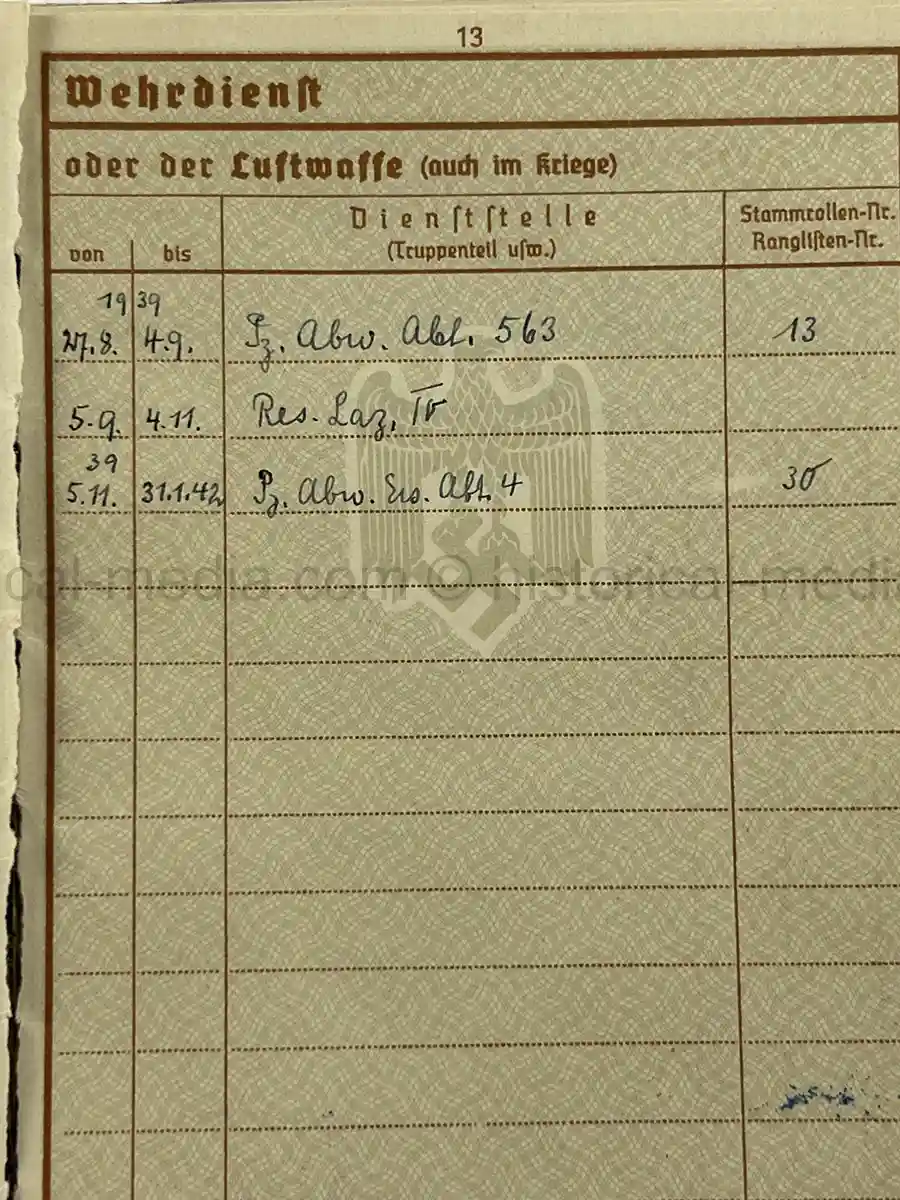 13
Wehrdienst
oder der Luftwaffe (auch im Kriege)
von bis Dienststelle (Truppenteil usw.) Stammrollen-Nr. Ranglisten-Nr.
19 39
27.8. 4.9. Pz. Abw. Abt. 563 13
5.9. 4.11. Res. Laz. IV
39
5.11. 31.1.42 Pz. Abw. Ers. Abt. 4 30
cal-media.com © historical-media